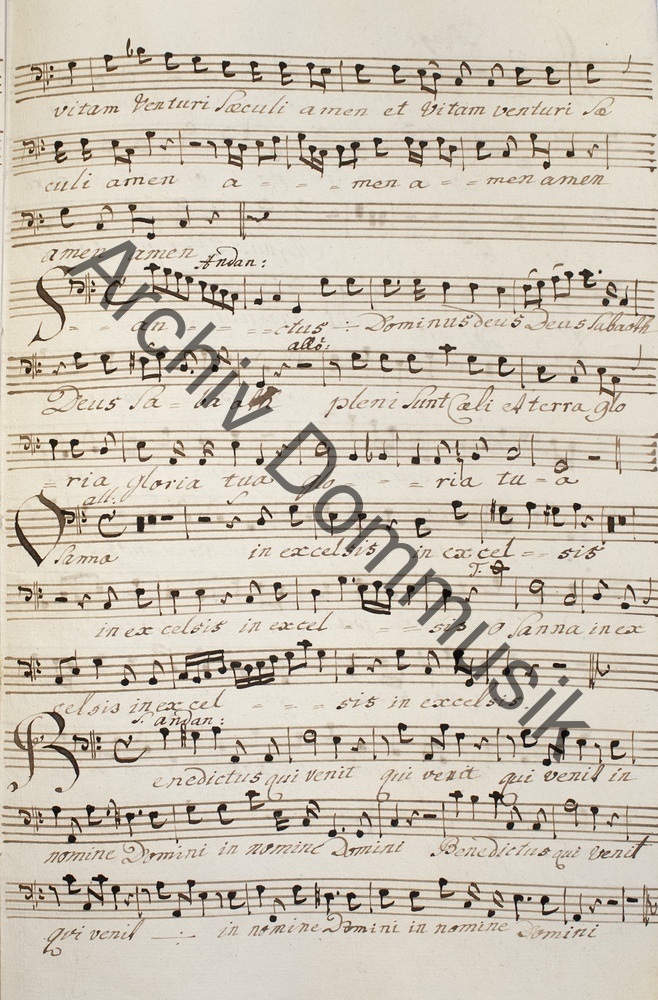 vitam Venturi Sæculi amen et Vitam venturi Sæ
culi amen a - - - men a - - men amen
amen amen
Andan:
San - - - - ctus Dominus deus Deus Sabaoth
allo:
Deus Sa - ba oth pleni Sunt Cæli et terra glo
= ria gloria tua glo - - - ria tu - a
all:
S
O Sanna in excelsis in excel - - sis
T.
in excelsis in excel - - - sis O Sanna in ex
celsis in excel - - - sis in excelsis.
S. andan:
Benedictus qui venit qui venit qui venit in
nomine Domini in nomine Domini Benedictus qui Venit
qui venit in nomine Domini in nomine Domini
Archiv Dommusik